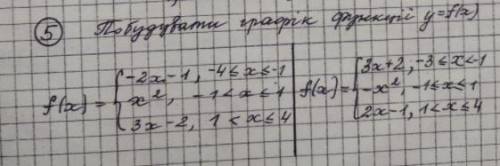 ⑤ Побудувати графік функції y=f(x)
f(x)={-2x-1, -4≤x≤-1 | f(x)={3x+2, -3≤x<-1
x², -1<x≤1 | -x², -1≤x≤1
3x-2, 1<x≤4 | 2x-1, 1<x≤4